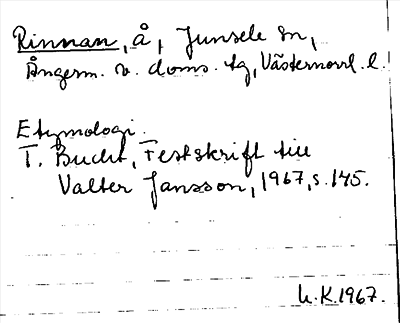 Rinnan, å, Junsele sn,
Ångerm. v. doms. tg, Västernorrl. l.
Etymologi.
T. Bucht, Festskrift till
Valter Jansson, 1967, s. 145.
U.K. 1967.